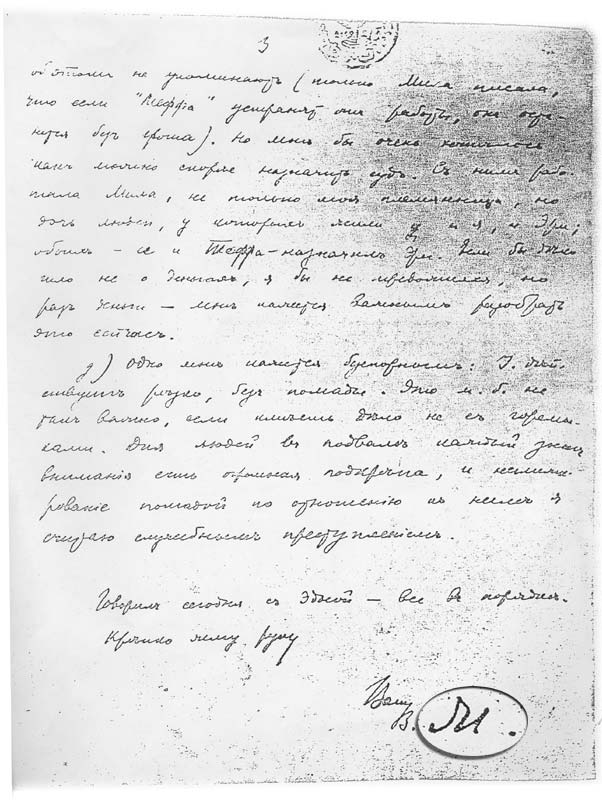 3
об этом не упоминают (только Мила писала,
что если "Теффа" устранят от работы, они оста-
нутся без гроша). Но мне бы очень хотелось
как можно скорѣе назначить судъ. Съ ними рабо-
тала Мила, не только моя племянница, но
дочь людей, у которых жили и я, и Эри;
обоих - ее и Теффа - назначил Эри. Если бы дѣло
шло не о деньгах, я бы не тревожился, но
раз деньги — мнѣ кажется важным разобрать
это сейчас.
д) Одно мнѣ кажется безспорным: Г. дѣй-
ствует рѣзко, без помады. Это м. б. не
так важно, если имѣешь дѣло не съ горемы-
ками. Для людей въ подвалѣ каждый знак
вниманія есть огромная поддержка, и
помадой по отношению къ ним я
считаю служебным преступленіем.
Говорил сегодня съ — все въ порядкѣ.
Крѣпко жму руку
Ваш
В. М.